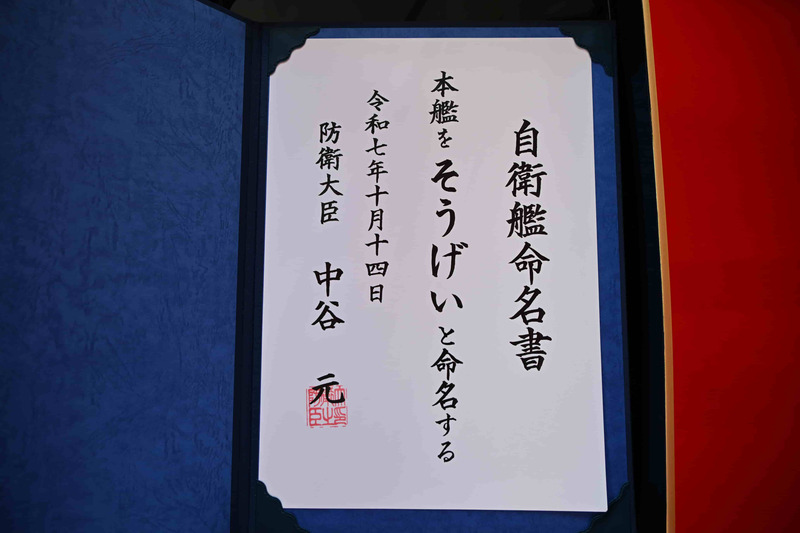 自衛艦命名書
本艦をそうげいと命名する
令和七年十月十四日
防衛大臣 中谷 元